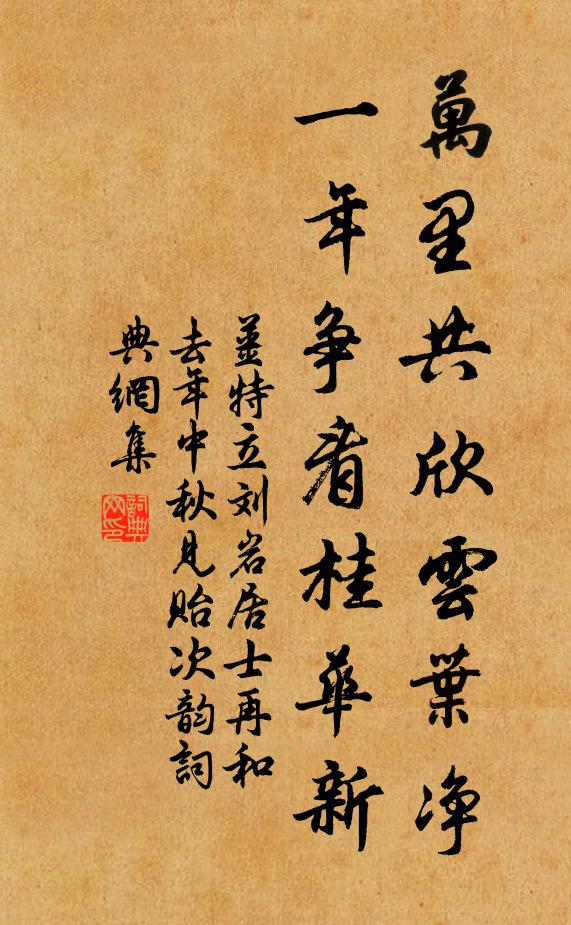 萬里共欣雲葉净
一年争看桂華新
薑特立刘岩居士再和
去年中秋見貽次韵詞
典網集
詞典
网印